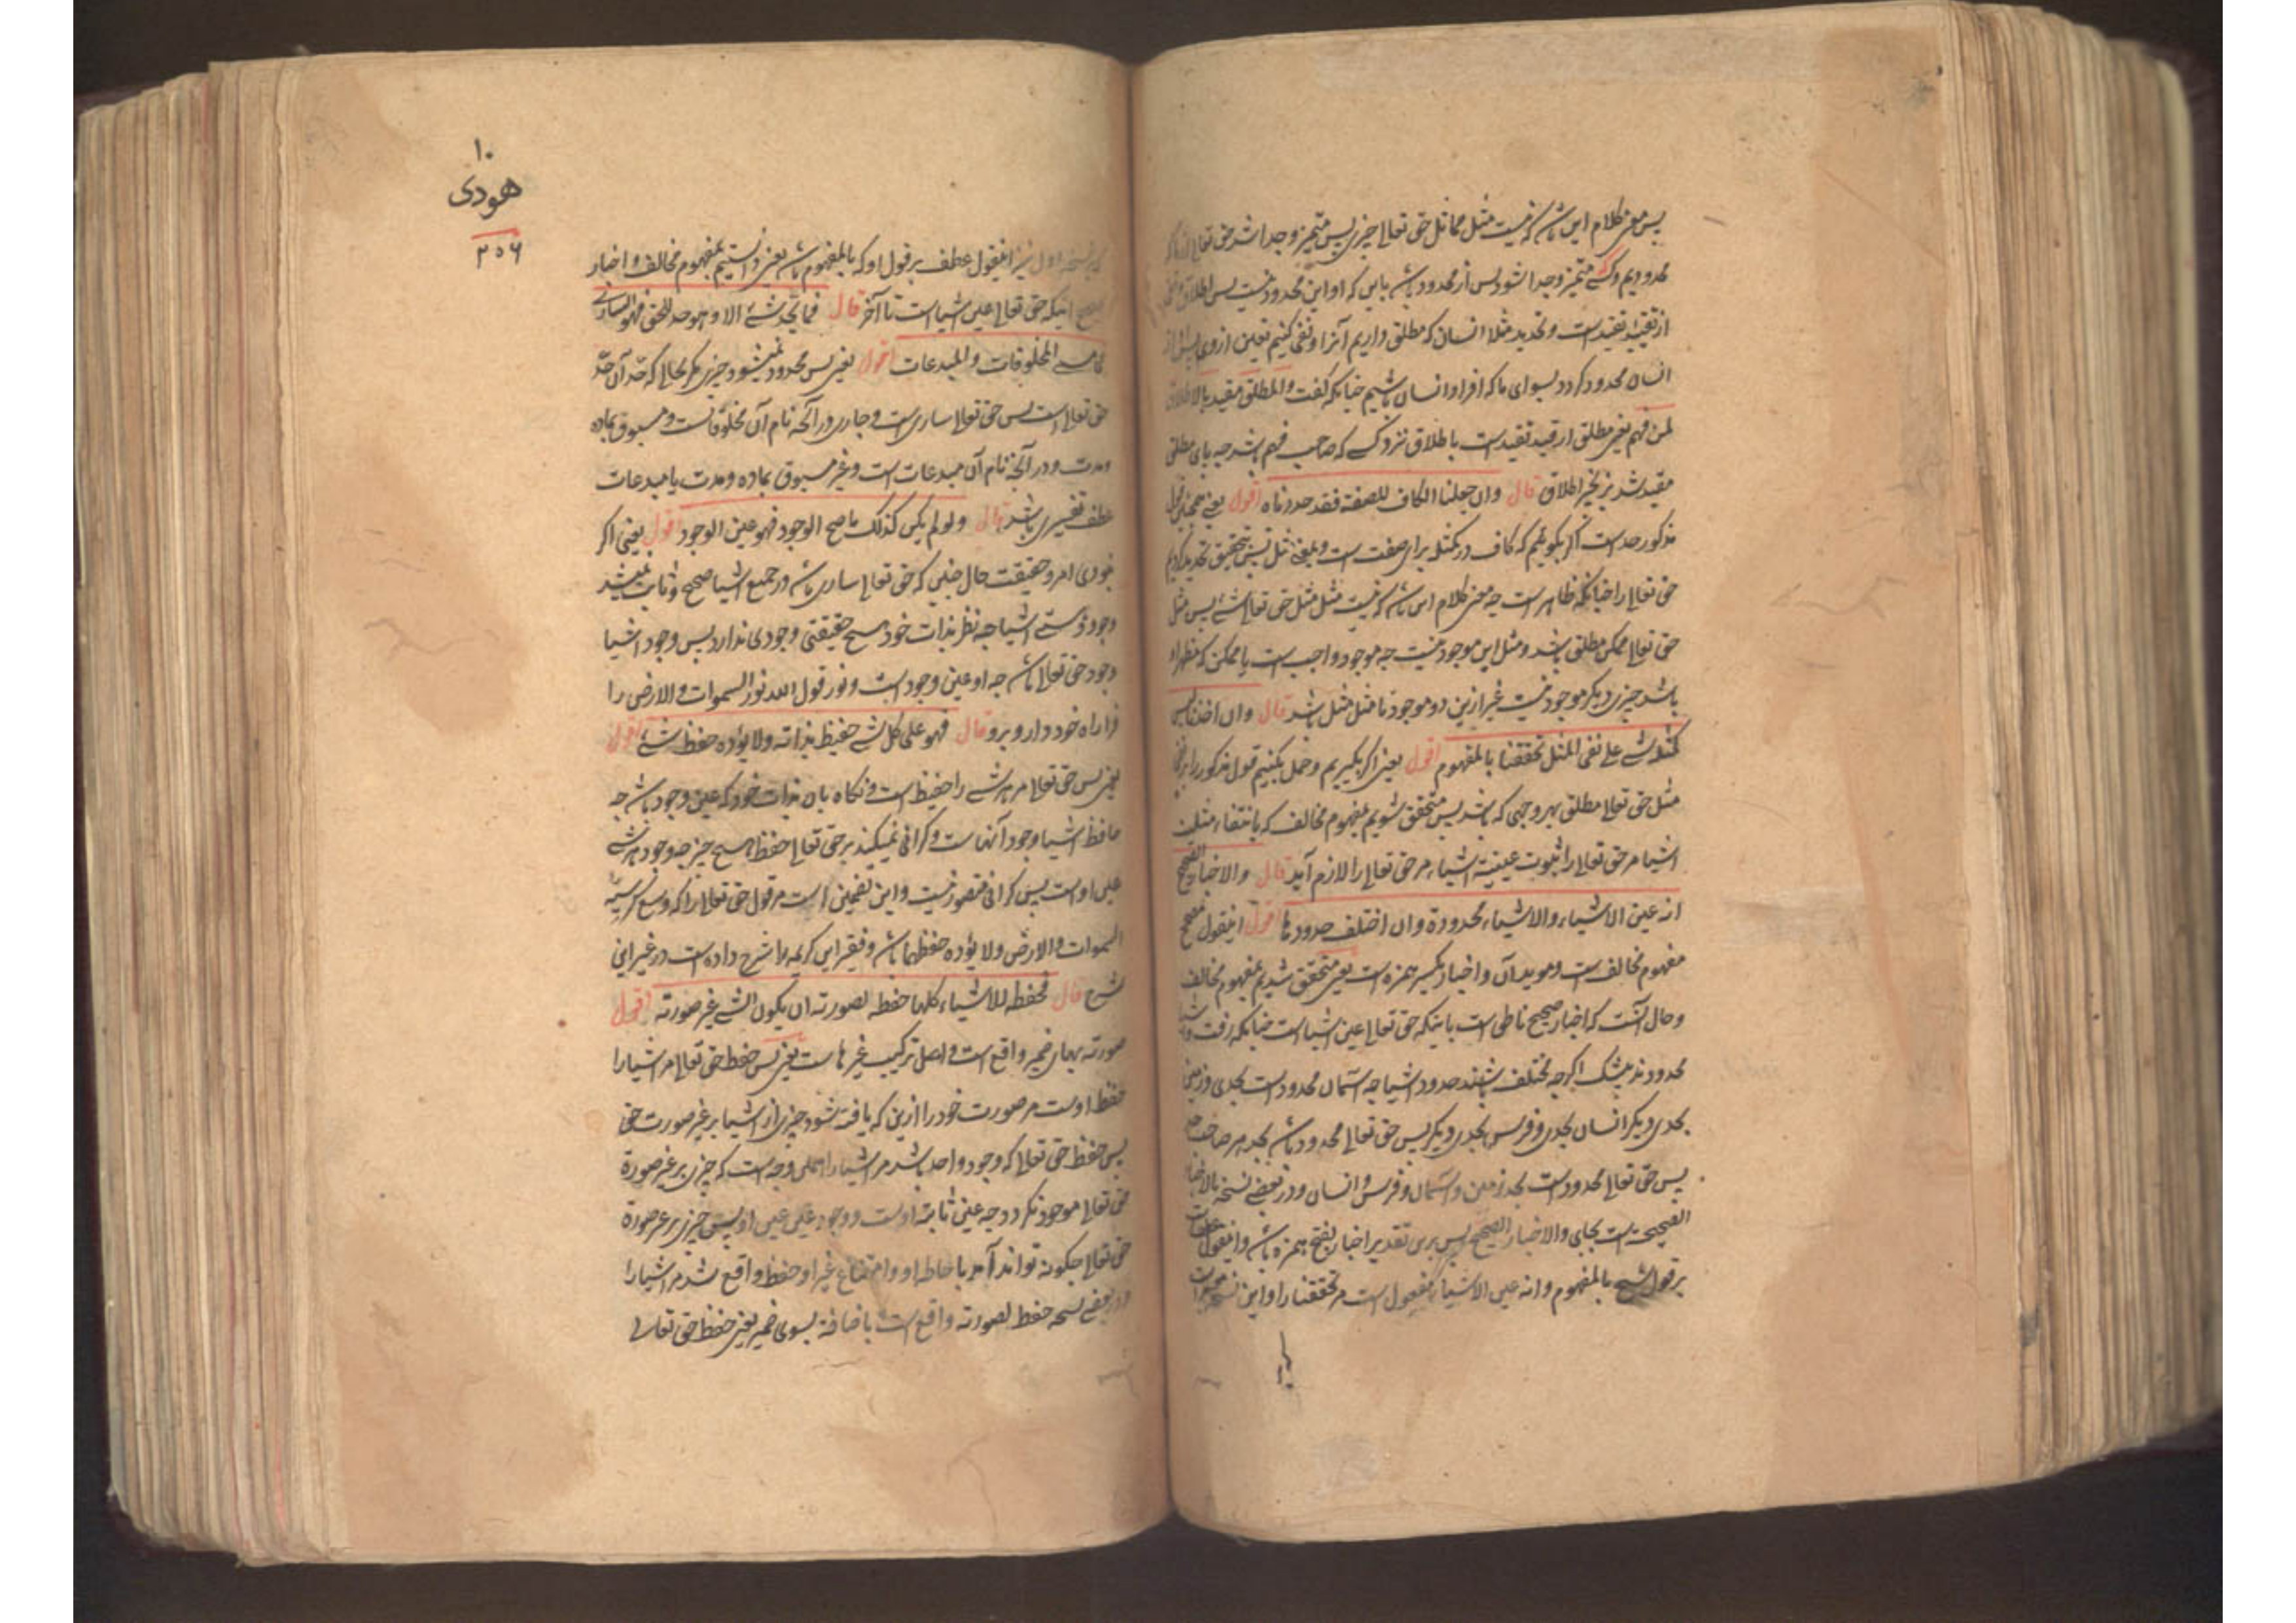 پس معنی کلام این باشد که نیست مثل مماثل حق تعالی چیزی پس متمیز وجدا شد حق تعالی
محدودیم وکسی متمیز وجدا شود پس از محدود باشد باین که او این محدود نیست پس اطلاق
از تقیید تقیید است وتحدید مثلا انسان که مطلق داریم آنرا ونفی کنیم تعین از وی پس
انسان محدود کردد بسوای ما که افراد انسان باشیم چنانکه کفت والمطلق مقید بالاطلاق
لمن فهم یعنی مطلق از قید تقید است باطلاق نزد کسی که صاحب فهم باشد چه پای مطلق
مقید شد بزنجیر اطلاق قال وان جعلنا الکاف للصفة فقد حددناه اقول یعنی
مذکور حد است اکر بکوئیم که کاف در کمثله برای صفت است وبمعنی مثل پس بتحقیق تحدید کردیم
حق تعالی را چنانکه ظاهر است چه معنی کلام این باشد که نیست مثل مثل حق تعالی شئ پس مثل
حق تعالی ممکن مطلق باشد ومثل این موجود نیست چه موجود واجب است یا ممکن که مظهر او
باشد چیزی دیکر موجود نیست غیر ازین دو موجود تا مثل مثل باشد قال وان اخذنا لیس
کمثله شئ علی نفی المثل تحققنا بالمفهوم اقول یعنی اکر بکیریم وحمل بکنیم قول مذکور را بر نفی
مثل حق تعالی مطلق بهر وجهی که باشد پس متحقق شویم بمفهوم مخالف که بانتفاء مثلیت
اشیا مر حق تعالی را ثبوت عینیة اشیاء مر حق تعالی را لازم آید قال والاخبار الصحیح
انه عین الاشیاء والاشیاء محدودة وان اختلف حدودها اقول اینقول
مفهوم مخالف است وموید آن واخبار بکسر همزه است یعنی متحقق شدیم بمفهوم مخالف
وحال آنست که اخبار صحیح ناطق است باینکه حق تعالی عین اشیا است چنانکه رفت
محدودند بیشک اکرچه مختلف باشند حدود اشیا چه آسمان محدود است بحدی وزمین
بحدی دیکر انسان بحدی وفرس بحدی دیکر پس حق تعالی محدود باشد بحد هر صاحب حد
پس حق تعالی محدود است بحد زمین وآسمان وفرس وانسان ودر بعضی نسخه بالاخبار
الصحیحة است بجای والاخبار الصحیح پس برین تقدیر اخبار بفتح همزه باشد واینقول
بر قول شیخ بالمفهوم وانه عین الاشیا مفعول است مر تحققنا را واین نسخه
اول نیز اینقول عطف بر قول او که بالمفهوم باشد یعنی دانستیم بمفهوم مخالف واخبار
صحیح اینکه حق تعالی عین اشیا است تا آخر قال فما یحد شئ الا وهو حد للحق فهو الساری
فی مسمی المخلوقات والمبدعات اقول یعنی پس محدود نمیشود چیزی مکر بحالی که حد آن حد
حق تعالی است پس حق تعالی ساری است وجاری در آنچه نام آن مخلوقات است ومسبوق بماده
ومدت ودر آنچه نام آن مبدعات است وغیر مسبوق بماده ومدت یا مبدعات
عطف تفسیری باشد قال ولو لم یکن کذلک ما صح الوجود فهو عین الوجود اقول یعنی اکر
نبودی امر وحقیقت حال چنین که حق تعالی ساری باشد در جمیع اشیا صحیح وثابت نمیشد
وجود وهستی اشیا چه نظر بذات خود هیچ حقیقتی وجودی ندارد پس وجود اشیا
وجود حق تعالی باشد چه او عین وجود است ونور قول الله نور السموات والارض را
فرا راه خود دار وبرو قال فهو علی کل شئ حفیظ بذاته ولا یؤده حفظ شئ اقول
یعنی پس حق تعالی مر هر شئ را حفیظ است ونکاه بان بذات خود که عین وجود باشد چه
حافظ اشیا وجود آنهاست وکرانی نمیکند بر حق تعالی حفظ هیچ چیز چه وجود هر شئ
عین اوست پس کرانی متصور نیست واین تضمینی است مر قول حق تعالی را که وسع کرسیه
السموات والارض ولا یؤده حفظهما باشد وفقیر این کریمه را شرح داده است در غیر این
شرح قال فحفظه للاشیاء کلها حفظه لصورته ان یکون الشئ غیر صورته اقول
صورته بهای ضمیر واقع است واصل ترکیب غیرها است یعنی پس حفظ حق تعالی مر اشیا را
حفظ اوست مر صورت خود را ازین که یافته شود چیزی از اشیا بر غیر صورت حق
پس حفظ حق تعالی که وجود واحد باشد مر اشیا را بمحلی وجه است که چیزی بر غیر صورة
حق تعالی موجود نکردد چه عین ثابته اوست ووجود علی عین او پس چیزی بر غیر صورة
حق تعالی چکونه تواند آمد باحاطه او وامتناع غیر او حفظ واقع شد مر اشیا را
ودر بعضی نسخه حفظ لصورته واقع است باضافة بسوی ضمیر یعنی حفظ حق تعالی
۱۰
هودی
۲۵۶